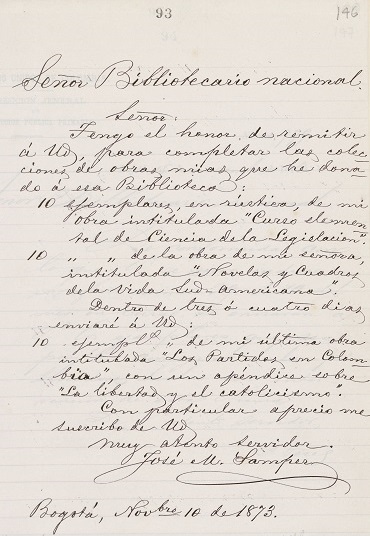 93
146
Señor Bibliotecario nacional.
Señor:
Tengo el honor de remitir
á Ud, para completar las colec
ciones de obras mias que he dona-
do á esa Biblioteca:
10 ejemplares, en rústica, de mi
obra intitulada "Curso elemen-
tal de Ciencia de la Legislacion".
10 " " de la obra de mi señora,
intitulada "Novelas y Cuadros
de la vida Sur-americana".
Dentro de tres ó cuatro dias
enviaré á Ud:
10 ejempls de mi última obra
intitulada "Los Partidos en Colom-
bia", con un apéndice sobre
"La libertad y el catolicismo".
Con particular aprecio me
suscribo de Ud
muy atento servidor.
José M. Samper
Bogotá, Novbre 10 de 1873.